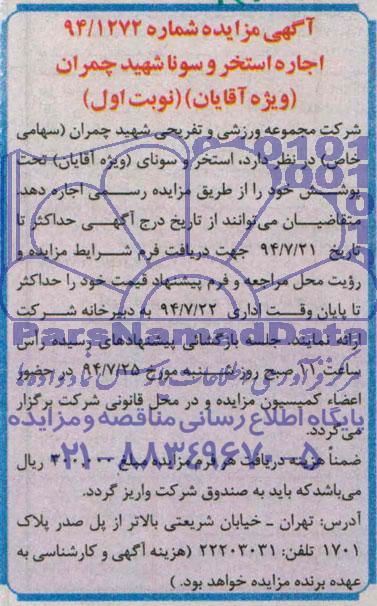 آگهی مزایده شماره ۹۴/۱۲۷۲
اجاره استخر و سونا شهید چمران
(ویژه آقایان) (نوبت اول)
شرکت مجموعه ورزشی و تفریحی شهید چمران (سهامی
خاص) در نظر دارد، استخر و سونای (ویژه آقایان) تحت
پوشش خود را از طریق مزایده رسمی اجاره دهد.
متقاضیان می‌توانند از تاریخ درج آگهی حداکثر تا
تاریخ ۹۴/۷/۲۱ جهت دریافت فرم شرایط مزایده و
رؤیت محل مراجعه و فرم پیشنهاد قیمت خود را حداکثر
تا پایان وقت اداری ۹۴/۷/۲۲ به دبیرخانه شرکت
ParsNamadData
ارائه نمایند. جلسه بازگشائی پیشنهادهای رسیده رأس
ساعت ۱۱ صبح روز شنبه مورخ ۹۴/۷/۲۵ در حضور
اعضاء کمیسیون مزایده و در محل قانونی شرکت برگزار
پایگاه اطلاع رسانی مناقصه و مزایده
می‌گردد.
۰۲۱-۸۸۳۴۹۶۷۰-۵
ضمناً هزینه دریافت هر فرم مزایده مبلغ ریال
می‌باشد که باید به صندوق شرکت واریز گردد.
آدرس: تهران ـ خیابان شریعتی بالاتر از پل صدر پلاک
۱۷۰۱ تلفن: ۲۲۲۰۳۰۳۱ (هزینه آگهی و کارشناسی به
عهده برنده مزایده خواهد بود.)